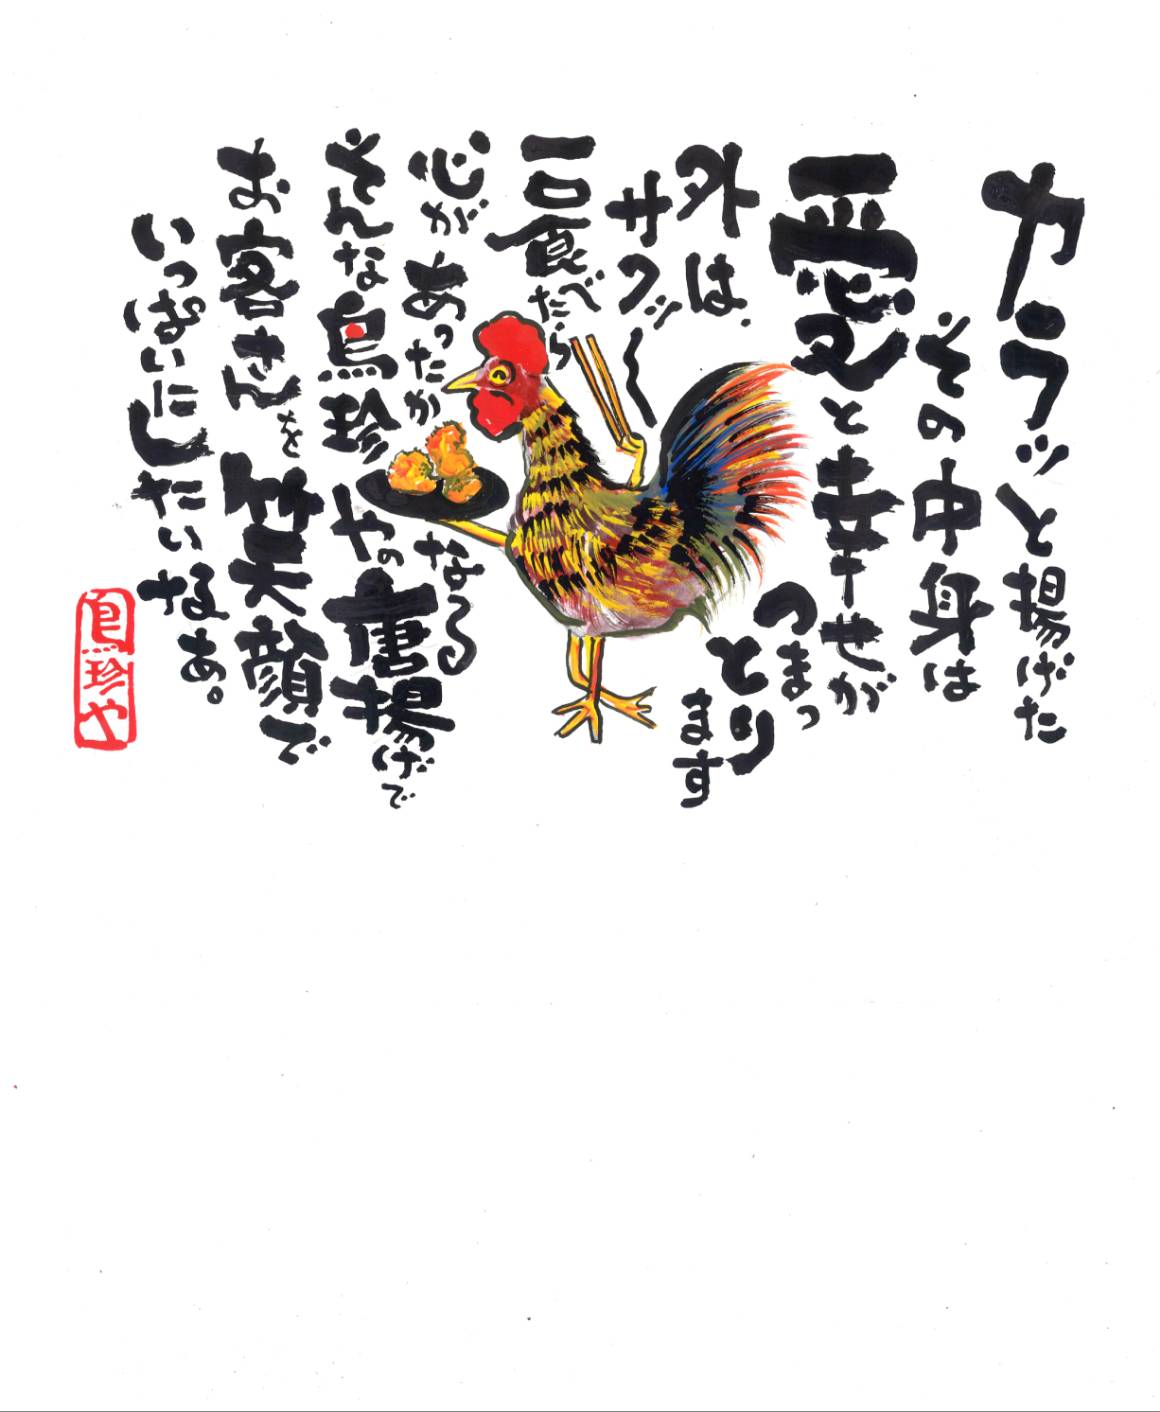 カラッと揚げた
その中身は
愛と幸せが
つまっ
とり
ます
外は、
サクッ〜
一口食べたら
心があったか
なる
そんな鳥珍やの唐揚げで
お客さんを笑顔で
いっぱいにしたいなあ。
鳥珍や